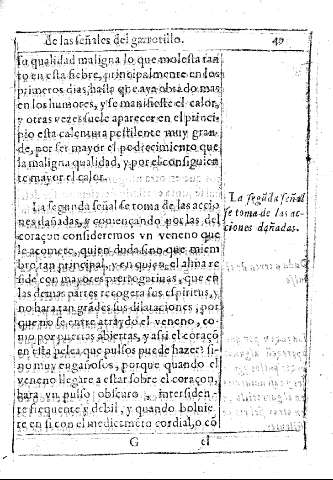 de las señales del garrotillo. 49
su qualidad maligna lo que molesta tan
to en esta fiebre, principalmente en los
primeros dias, hasta que aya obrado mas
en los humores, y se manifieste el calor,
y otras vezes suele aparecer en el princi-
pio esta calentura pestilente muy gran-
de, por ser mayor el podrecimiento que
la maligna qualidad, y por el consiguien
te mayor el calor.
La segunda señal se toma de las accio
nes dañadas, y començando por las del
coraçon consideremos vn veneno que
le acomete, quien duda sino que miem
bro tan principal, y en quien el alma re
side con mayores prerrogatiuas, que en
las demas partes recogera sus espiritus, y
no hara tan grãdes sus dilataciones, por
que no se entre atraydo el veneno, co-
mo por puertas abiertas, y assi el coraçõ
en esta pelea que pulsos puede hazer? si-
no muy engañosos, porque quando el
veneno llegare a estar sobre el coraçon,
hara vn pulso obscuro, intersiden-
te frequente y debil, y quando boluie
re en si con el medicamẽto cordial, o cõ
G el
La segũda señal
se toma de las ac
ciones dañadas.